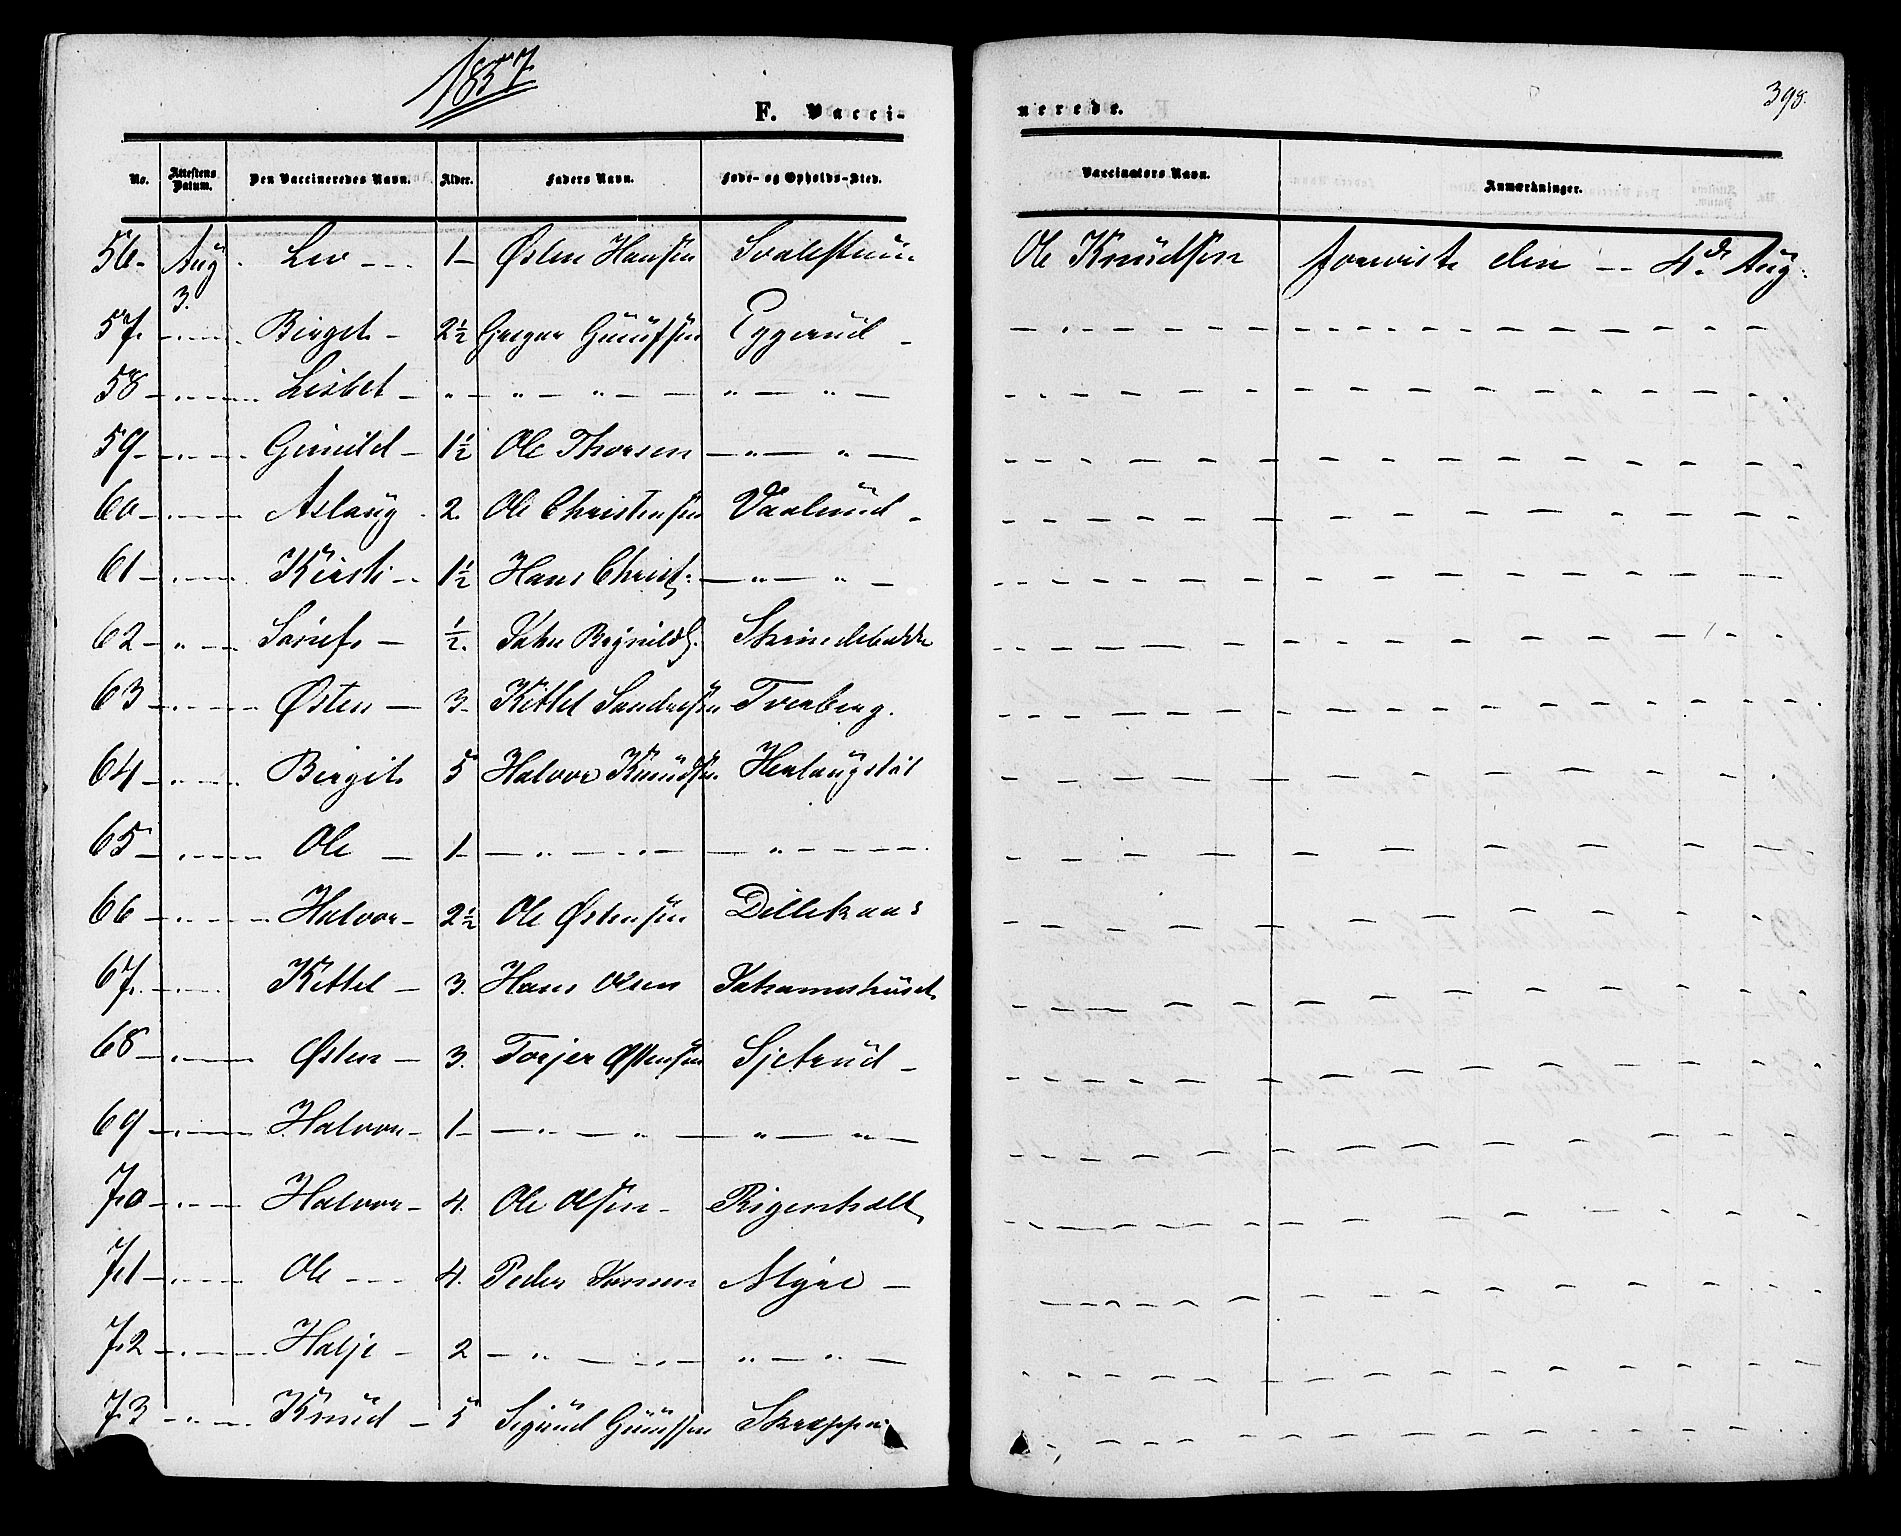 1857
F. Vacci-
nerede.
398.
No. Attestens Datum. Den Vaccineredes Navn. Alder. Faders Navn. Føde- og Opholds-Sted. Vaccinators Navn. Anmærkninger.
56 Aug 3. Liv 1 Østen Hansen Ole Knudsen foreviste den 4de Aug.
57 " Birget 2½ Gregar Gunufsen Eggerud
58 " Lisbet " " " " "
59 " Gunild 1½ Ole Thorsen " "
60 " Aslaug 2. Ole Christensen Vaalerud
61 " Kirsti 1½ Hans Christ. " "
62 " ½.
63 " Østen 3. Kittel Tverberg.
64 " Birgit 5 Halvor Knudsen
65 " Ole 1 " " "
66 " Halvor 2½ Ole Østensen Dillekaas
67 " Kittel 3. Hans Olsen Johanneshuset
68 " Østen 3. Torjer Østensen Sjetrud
69 " Halvor 1 " " " "
70 " Halvor 4. Ole Olsen Rigenholt
71 " Ole 4. Peder Myre
72 " Halje 2 " " " "
73 " Knud 5 Sigurd Gunufsen